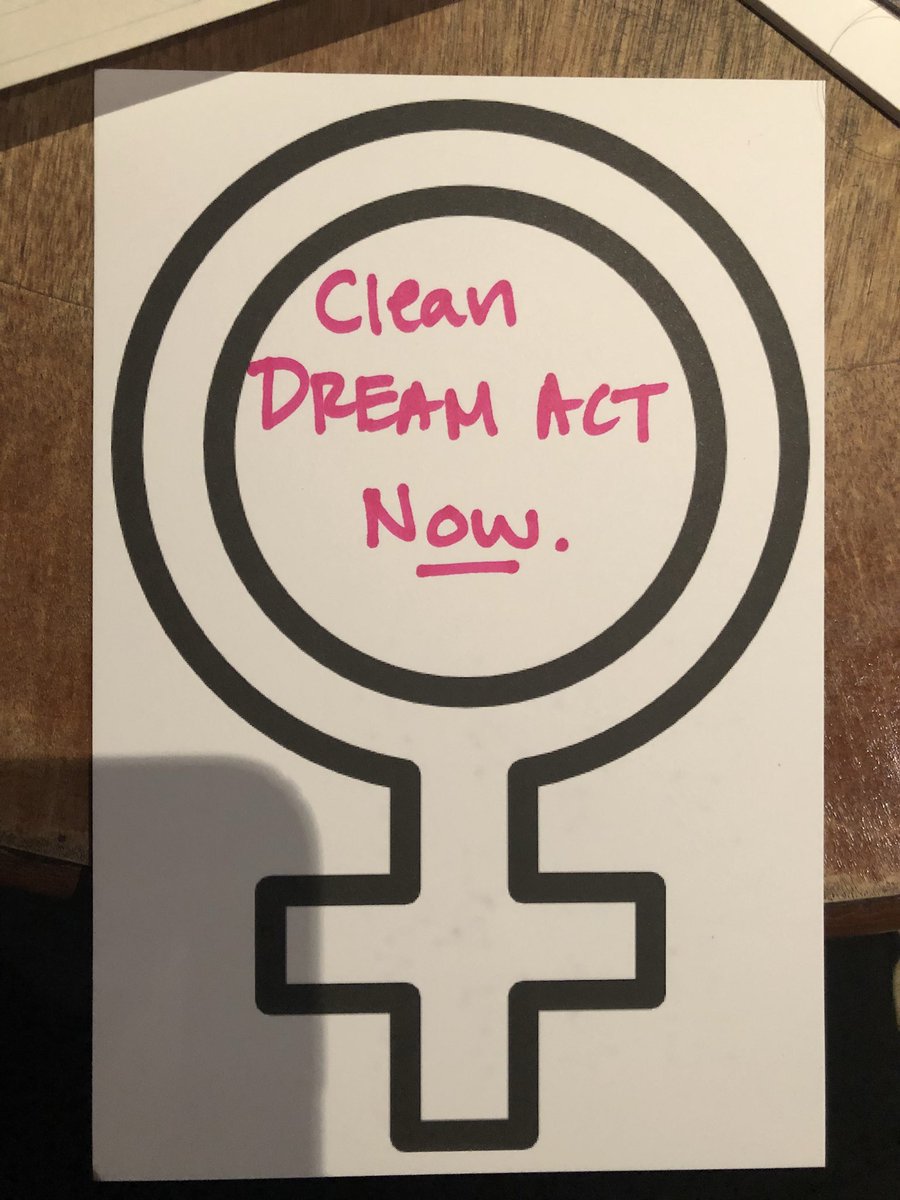 Clean
DREAM ACT
Now.